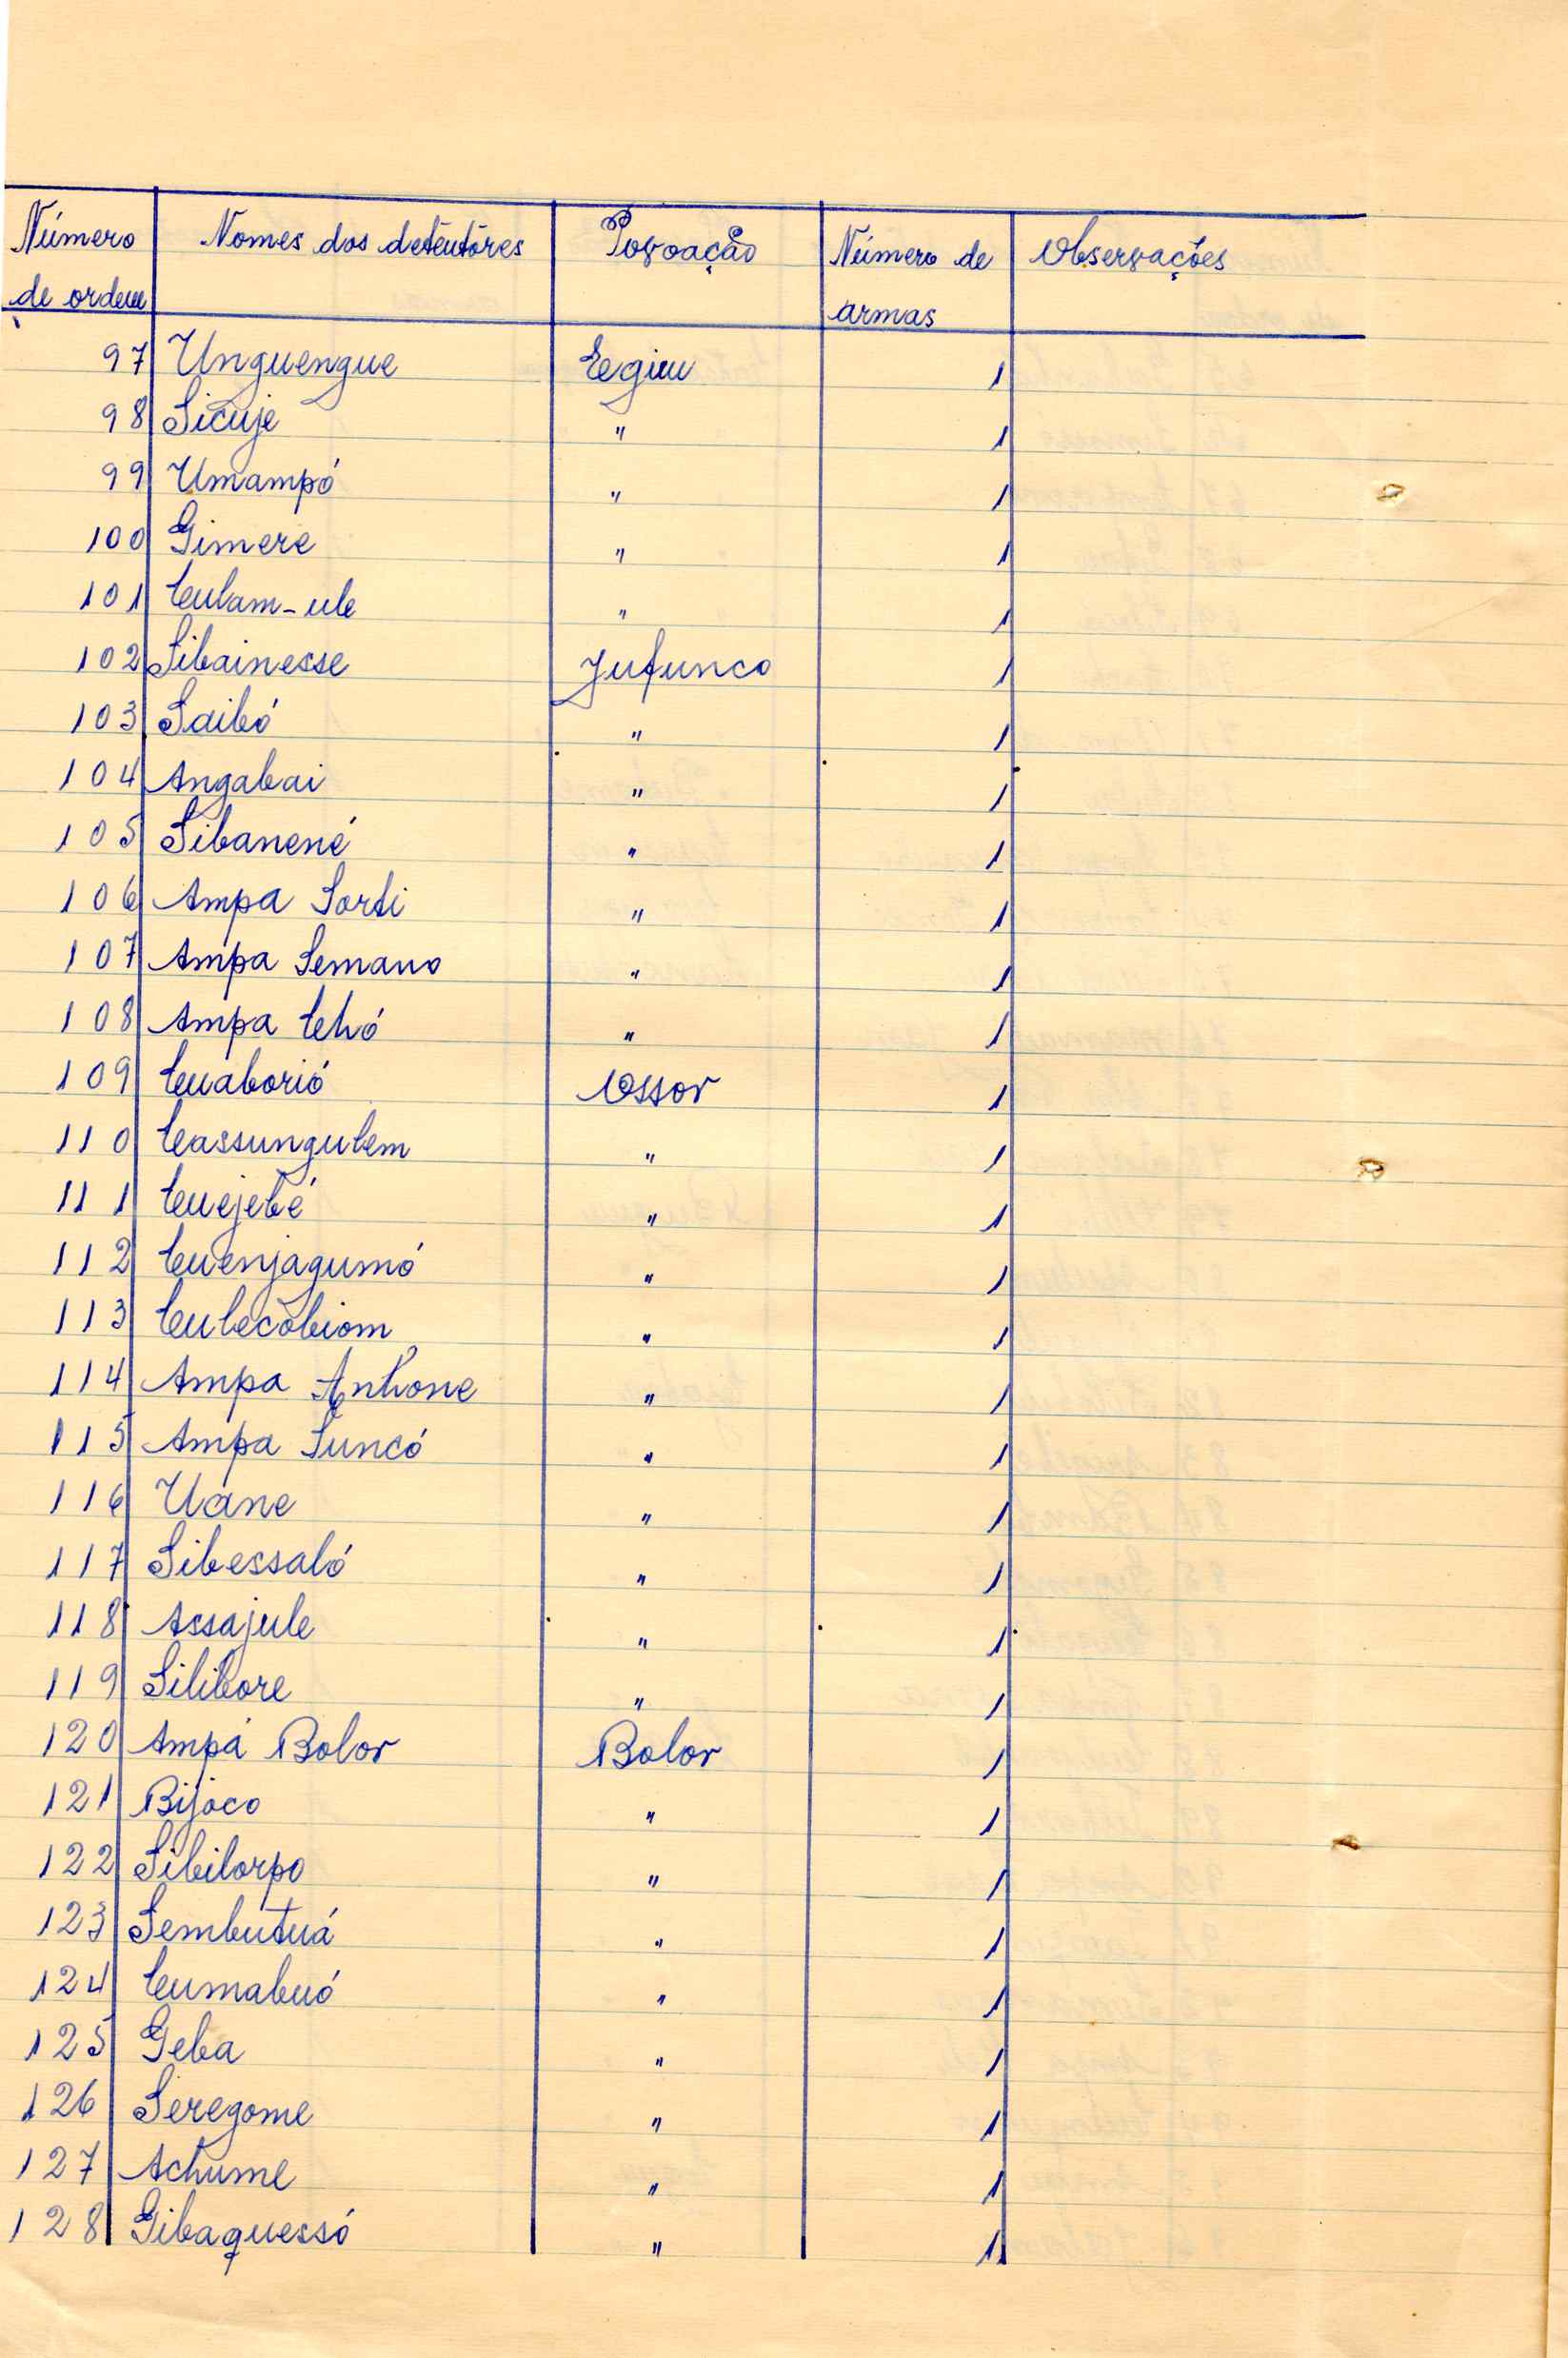 Número de ordem | Nomes dos detentôres | Povoação | Número de armas | Observações
97 Unguengue Egim 1
98 Sicuje " 1
99 Umampó " 1
100 Gimere " 1
101 Culam-ule " 1
102 Sibainesse Jufunco 1
103 Saibó " 1
104 Angabai " 1
105 Sibanené " 1
106 Ampa Sorti " 1
107 Ampa Semano " 1
108 Ampa Chó " 1
109 Cuaborió Ossor 1
110 Cassungulem " 1
111 Cuejebé " 1
112 Cuenjagumó " 1
113 Culecobiom " 1
114 Ampa Anhone " 1
115 Ampa Suncó " 1
116 Uane " 1
117 Sibessaló " 1
118 Assajule " 1
119 Silibore " 1
120 Ampá Bolor Bolor 1
121 Bijoco " 1
122 Sibilorpo " 1
123 Sembutuá " 1
124 Cumabuó " 1
125 Geba " 1
126 Seregome " 1
127 Achume " 1
128 Gibaquessó " 1